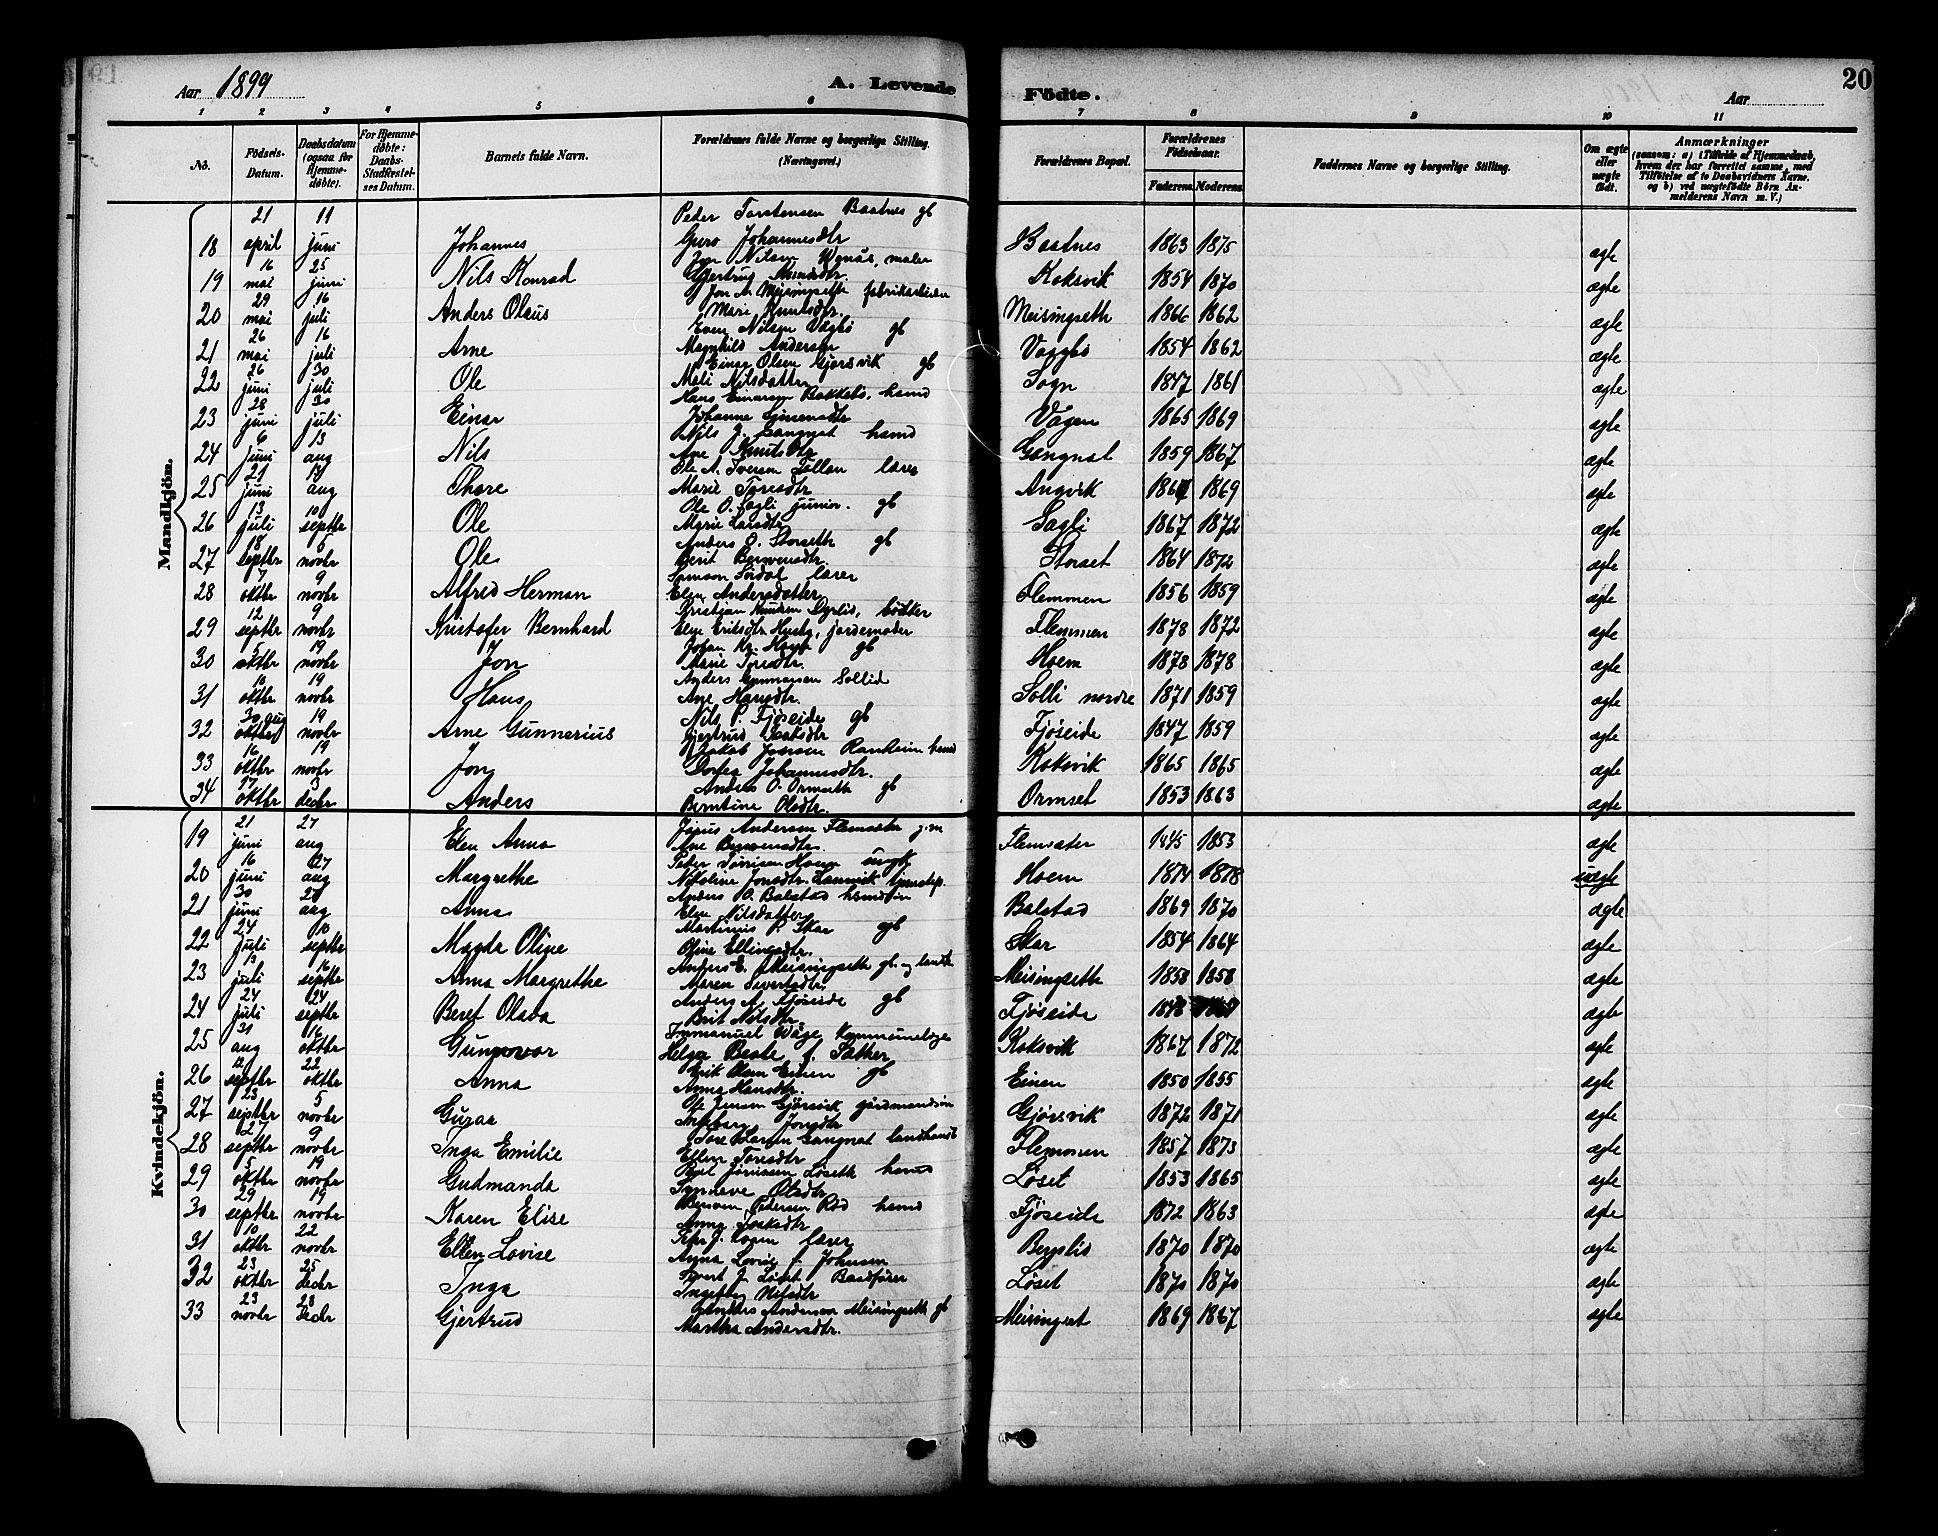 Aar 1899 A. Levende Födte. Aar 20
1 2 3 4 5 6 7 8 9 10 11
No. Födsels-Datum. Daabsdatum (ogsaa for Hjemme-döbte). For Hjemme-döbte: Daabs-Stadfæstelses Datum. Barnets fulde Navn. Forældrenes fulde Navne og borgerlige Stilling. (Næringsvei.) Forældrenes Bopæl. Forældrenes Födselsaar. Faderens. Moderens. Faddernes Navne og borgerlige Stilling. Om ægte eller uægte födt. Anmærkninger (saasom: a) i Tilfælde af Hjemmedaab, hvem der har forrettet samme, med Tilföielse af to Daabsvidners Navne, og b) ved uægtefödte Börn Anmelderens Navn m. V.)
Mandkjön.
18 21 april 11 juni Johannes Peder Torstensen Bastnes gb Johannesdtr Bastnes 1863 1875 ægte
19 16 mai 25 juni Nils Konrad Jon Nilsen maler Koksvik 1854 1870 ægte
20 29 mai 16 juli Anders Olaus Jon A. Meisingseth fabrikarbeider Mari Knutsdtr. Meisingseth 1866 1862 ægte
21 26 mai 16 juli Arne Even Nilsen Vaagbø gb Magnhild Andersen Vaagbø 1854 1862 ægte
22 26 juni 30 juli Ole Einar Olsen Gjørsvik gb Mali Nilsdatter Sogn 1847 1861 ægte
23 28 juni 30 juli Einar Hans Einarsen Bakkebø, hsmd Johanne Vågen 1865 1869 ægte
24 6 juni 13 aug Nils Nils J. Gangnat hsmd Ane Knutsdtr Gangnat 1859 1867 ægte
25 21 juni 13 aug Thore Ole A. Iversen lærer Marie Toresdtr Angvik 1869 ægte
26 13 juli 10 septbr Ole Ole O. Sagli junior. gb Marie Larsdtr Sagli 1867 1872 ægte
27 18 septbr 5 novbr Ole Anders O. Storseth gb Berit Bersvensdtr. Storset 1864 1872 ægte
28 7 oktbr 9 novbr Alfred Herman Samson Sørdal lærer Elen Andersdatter Flemmen 1856 1859 ægte
29 12 septbr 9 novbr Kristofer Bernhard Kristian Knutsen Dyrlid, bødker Elen Eriksdtr Husby, jordemoder Flemmen 1878 1872 ægte
30 5 oktbr 19 novbr Jon Johan Kr. Hoem gb Marie Toresdtr. Hoem 1878 1878 ægte
31 10 oktbr 19 novbr Hans Anders Gunnarsen Sollid Ane Hansdtr. Solli nordre 1871 1859 ægte
32 30 aug 19 novbr Arne Gunnerius Nils P. Fjøseide gb Gjertrud Isaksdtr Fjøseide 1847 1859 ægte
33 16 oktbr 19 novbr Jon Jakob Jonsen Ranheim hsmd Dorfea Johannesdtr. Koksvik 1865 1865 ægte
34 17 oktbr 3 decbr Anders Anders O. Ormseth gb Berntine Olsdtr. Ormset 1853 1863 ægte
Kvindekjön.
19 21 juni 27 aug Elen Anna Andersen Flemsæter Ane Bersvensdtr. Flemsæter 1845 1853 ægte
20 16 juni 27 aug Margrethe Peder Hoem ungk Nikoline Jonsdtr. Hoem 1874 1878 uægte
21 30 juni 27 aug Anna Anders O. Bolstad Elen Nilsdatter Bolstad 1869 1870 ægte
22 24 juli 10 septbr Magda Oline Martinus P. Skar gb Oline Ellingsdtr. Skar 1854 1864 ægte
23 13 juli 16 septbr Anna Margrethe Anders E. Meisingseth gb. og landh Maren Sivertsdtr. Meisingseth 1850 1858 ægte
24 24 juli 24 septbr Beret Olava Anders A. Fjøseide gb Brit Nilsdtr. Fjøseide 1848 ægte
25 31 aug 16 oktbr Gunnvor Immanuel Våge, kommunelæge Helga Beate f. Sæther Koksvik 1867 1872 ægte
26 12 septbr 22 oktbr Anna Erik Olsen Einen gb Anna Hansdtr. Einen 1850 1855 ægte
27 23 septbr 5 novbr Guraa Ole Jensen Gjørsvik gårdmandsøn Ingeborg Jonsdtr Gjørsvik 1872 1871 ægte
28 27 septbr 9 novbr Inga Emilie Tore Larsen Gangnat landhandl Ellen Toresdtr Flemmen 1857 1873 ægte
29 5 oktbr 19 novbr Gudmanda Løseth hsmd Synneve Olsdtr Løset 1853 1865 ægte
30 29 septbr 19 novbr Karen Elise Bersven Pedersen Rød hsmd Anna Isaksdtr Fjøseide 1872 1863 ægte
31 10 oktbr 22 novbr Ellen Lovise Peder J. Hoem lærer Anna Lovise f. Johnsen Bergslid 1870 1870 ægte
32 23 oktbr 25 decbr Inga Sivert J. Løset Baadfører Ingeborg Nilsdtr Løset 1870 1870 ægte
33 23 novbr 28 decbr Gjertrud Anders Andersen Meisingseth gb Martha Andersdtr. Meisingset 1869 1867 ægte